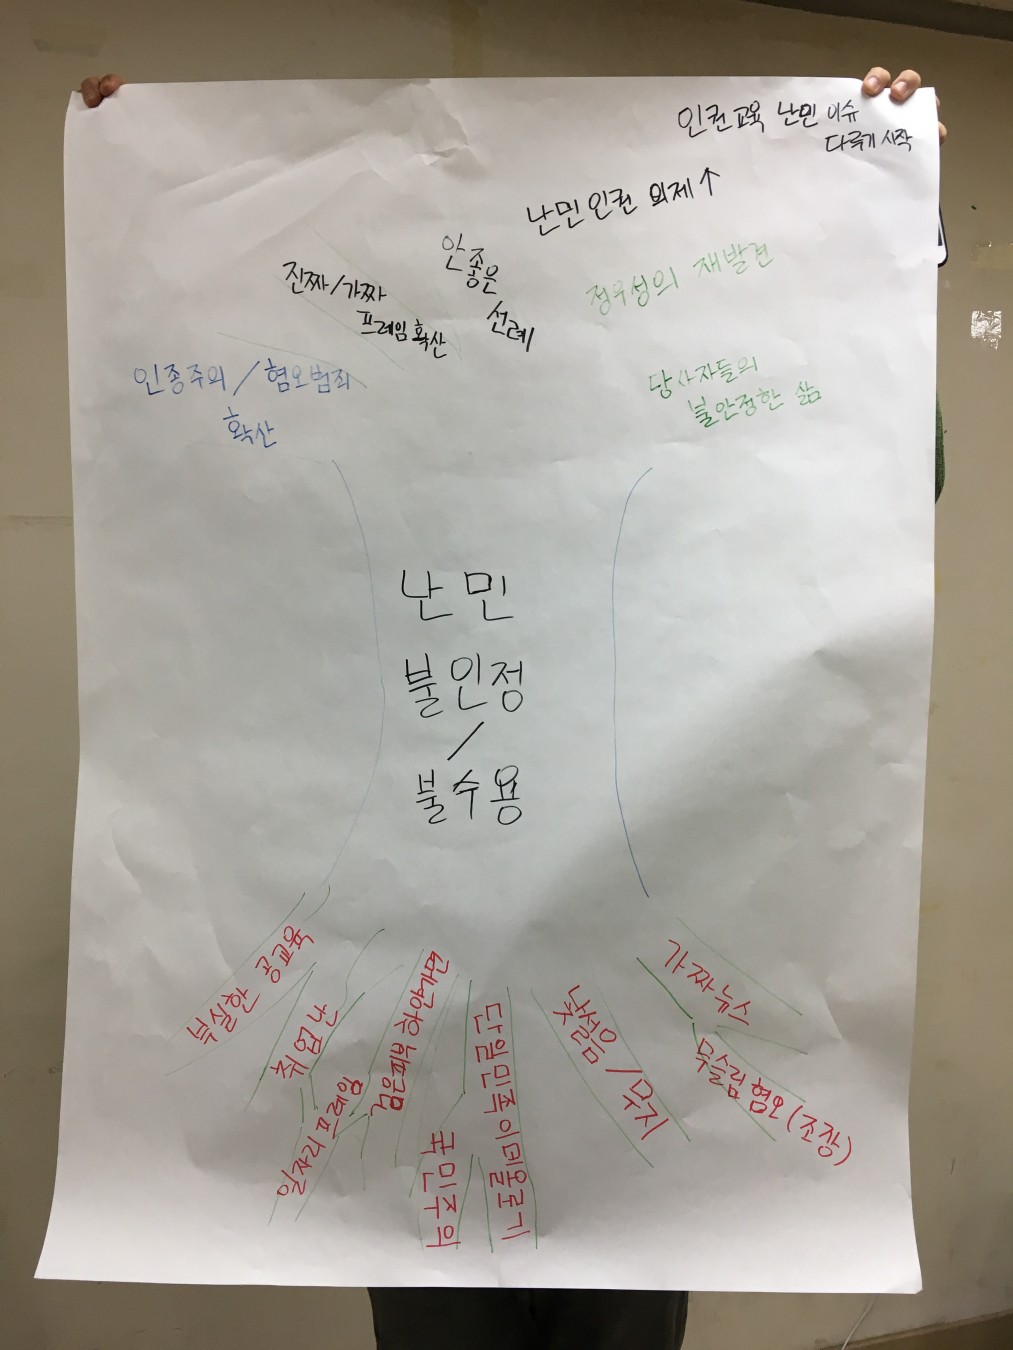 인권교육 난민 이슈
다루기 시작
난민인권 의제↑
안좋은
선례
진짜/가짜
프레임 확산
정우성의 재발견
인종주의/혐오범죄
확산
당사자들의
불안정한 삶
난민
불인정
/
불수용
부실한 공교육
취업난
일자리 프레임
단일민족이데올로기
국민주의
낯설음/무지
가짜뉴스
무슬림 혐오(조장)